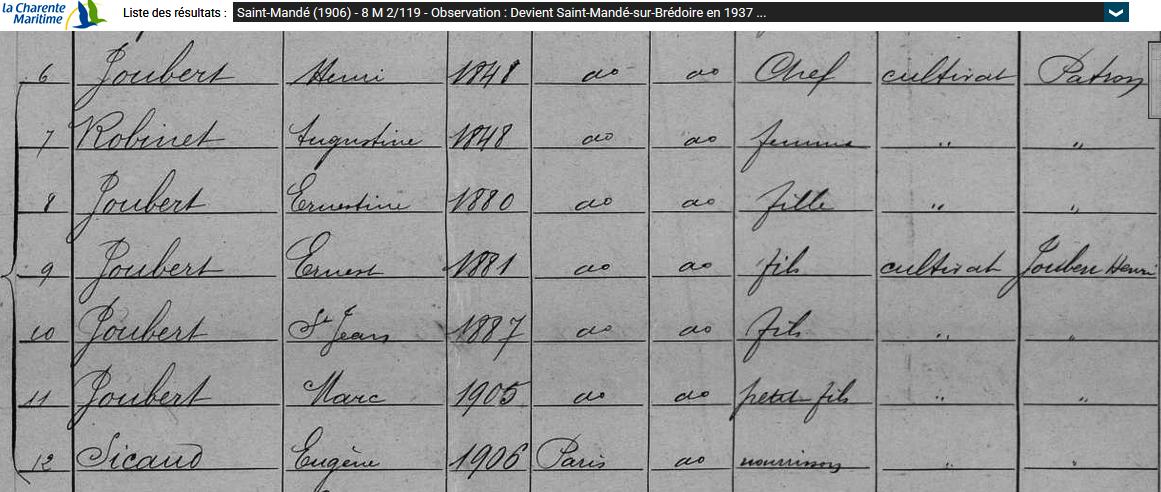 la Charente
Maritime
Liste des résultats : Saint-Mandé (1906) - 8 M 2/119 - Observation : Devient Saint-Mandé-sur-Brédoire en 1937 ...
6 Joubert Henri 1848 do do Chef cultivat Patron
7 Robinet Augustine 1848 do do femme " "
8 Joubert Ernestine 1880 do do fille " "
9 Joubert Ernest 1881 do do fils cultivat Joubert Henri
10 Joubert St Jean 1887 do do fils " "
11 Joubert Marc 1905 do do petit fils " "
12 Sicaud Eugène 1906 Paris do nourrisson " "